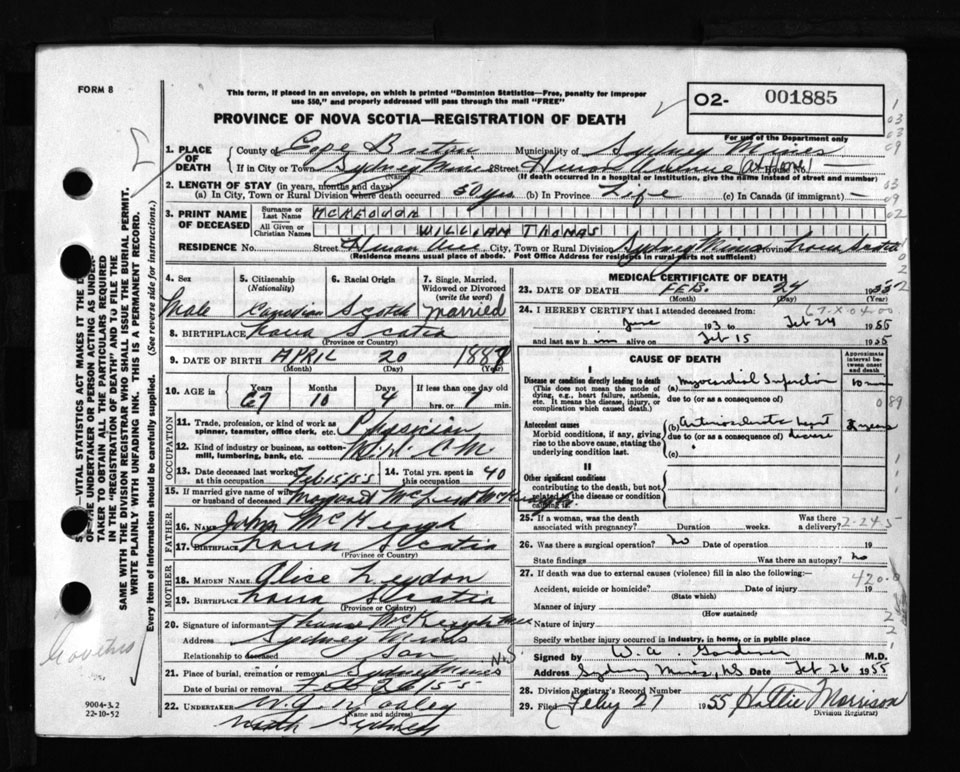 FORM 8
This form, if placed in an envelope, on which is printed "Dominion Statistics—Free, penalty for improper
use $50," and properly addressed will pass through the mail "FREE"
02- 001885
PROVINCE OF NOVA SCOTIA—REGISTRATION OF DEATH
For use of the Department only
1. PLACE OF DEATH
County of Cape Breton Municipality of Sydney Mines
If in City or Town Sydney Mines Street Huron Avenue (at Home)
(Name) (If death occurred in a hospital or institution, give its name instead of street and number)
2. LENGTH OF STAY (in years, months and days)
(a) In City, Town or Rural Division where death occurred 50 yrs (b) In Province Life (c) In Canada (if immigrant) —
3. PRINT NAME OF DECEASED
Surname or Last Name
All Given or Christian Names WILLIAM THOMAS
RESIDENCE No. Street Huron Ave City, Town or Rural Division Sydney Mines Province Nova Scotia
(Residence means usual place of abode. Post Office Address for residents in rural parts not sufficient)
4. Sex Male
5. Citizenship (Nationality) Canadian
6. Racial Origin Scotch
7. Single, Married, Widowed or Divorced (write the word) Married
8. BIRTHPLACE Nova Scotia
(Province or Country)
9. DATE OF BIRTH APRIL 20
(Month) (Day) (Year)
10. AGE is Years 67 Months 10 Days 4 If less than one day old hrs. or min.
OCCUPATION
11. Trade, profession, or kind of work as spinner, teamster, office clerk, etc. Physician
12. Kind of industry or business, as cotton-mill, lumbering, bank, etc. M.D. C.M
13. Date deceased last worked at this occupation Feb 15/55 14. Total yrs. spent in this occupation 40
15. If married give name of wife or husband of deceased
FATHER
16. Name John
17. Birthplace Nova Scotia
(Province or Country)
MOTHER
18. MAIDEN NAME Alice Leydon
19. BIRTHPLACE Nova Scotia
(Province or Country)
20. Signature of informant
Address Sydney Mines
Relationship to deceased Son
21. Place of burial, cremation or removal Sydney Mines N.S.
Date of burial or removal Feb 26 1955
22. UNDERTAKER
(Name and address)
North Sydney
MEDICAL CERTIFICATE OF DEATH
23. DATE OF DEATH FEB. 24
(Month) (Day) (Year)
24. I HEREBY CERTIFY that I attended deceased from:
June 193 to Feb 24 1955
and last saw him alive on Feb 15 1955
CAUSE OF DEATH
Approximate interval between onset and death
I
Disease or condition directly leading to death (a) Myocardial Infarction 10 min
(This does not mean the mode of dying, e.g., heart failure, asthenia, etc. It means the disease, injury, or complication which caused death.)
due to (or as a consequence of)
Antecedent causes (b) Arteriosclerotic heart disease years
Morbid conditions, if any, giving rise to the above cause, stating the underlying condition last.
due to (or as a consequence of)
(c)
II
Other significant conditions contributing to the death, but not related to the disease or condition causing it.
25. If a woman, was the death associated with pregnancy? Duration weeks. Was there a delivery?
26. Was there a surgical operation? no Date of operation 19
State findings Was there an autopsy? no
27. If death was due to external causes (violence) fill in also the following:—
Accident, suicide or homicide? Date of injury 19
(State which)
Manner of injury
(How sustained)
Nature of injury
Specify whether injury occurred in industry, in home, or in public place
Signed by W. A. Gardiner M.D.
Address Sydney Mines, NS Date Feb 26 1955
28. Division Registrar's Record Number
29. Filed Feby 27 1955 Hattie Morrison
Division Registrar
WRITE PLAINLY WITH UNFADING INK. THIS IS A PERMANENT RECORD.
Every item of information should be carefully supplied. (See reverse side for instructions.)
9004-3.2
22-10-52